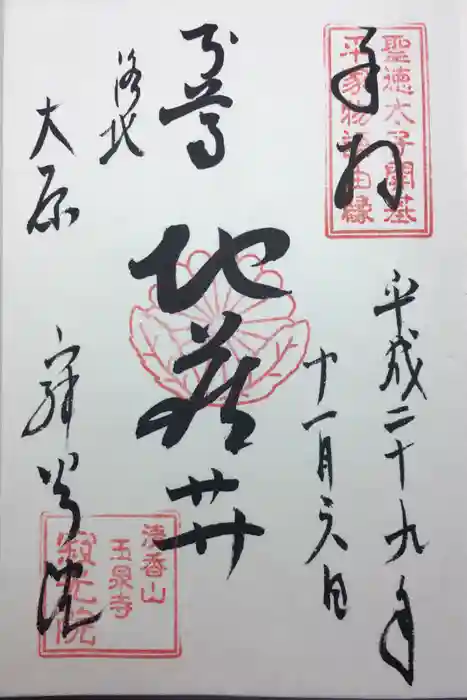 聖徳太子開基
平家物語由縁
奉拝
平成二十九年
十一月六日
本尊
地蔵𦬇
洛北
大原
寂光院
清香山
玉泉寺
寂光院